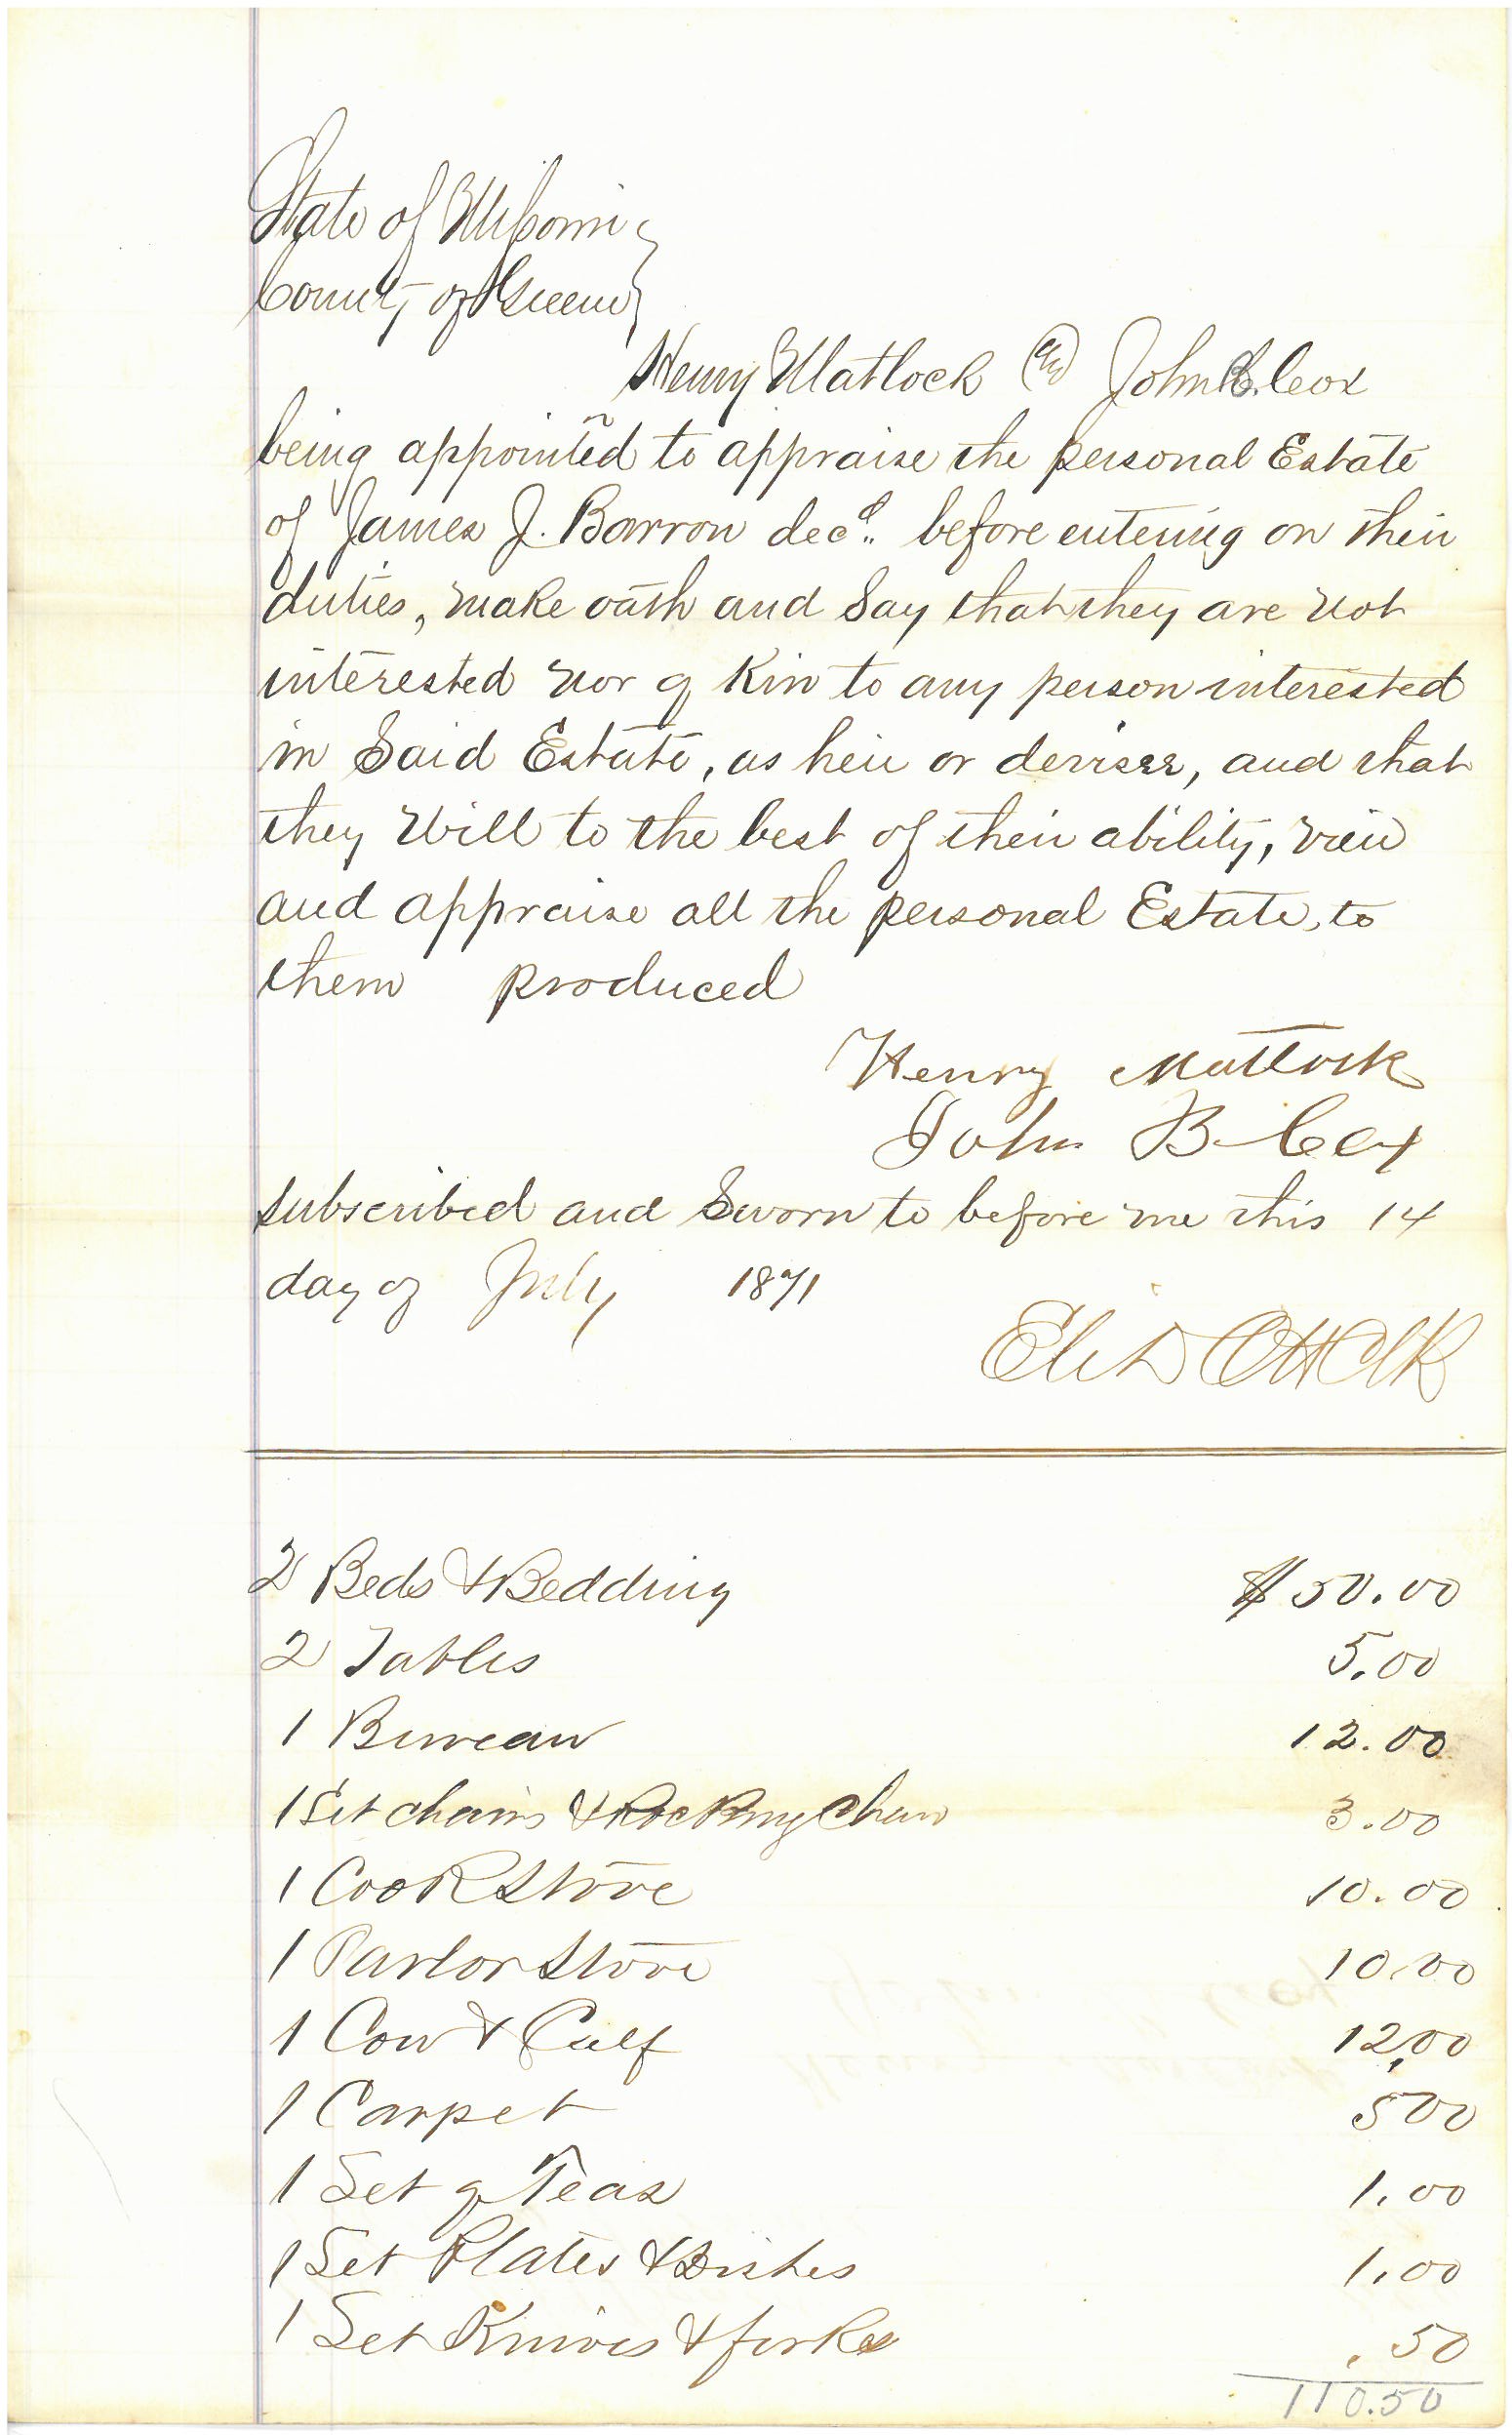 State of Missouri
County of Greene
Henry Matlock & John B. Cox
being appointed to appraise the personal Estate
of James J. Barron decd. before entering on their
duties, make oath and Say that they are not
interested nor of Kin to any person interested
in Said Estate, as heir or devisee, and that
they Will to the best of their ability, view
and appraise all the personal Estate, to
them produced
Henry Matlock
John B Cox
subscribed and Sworn to before me this 14
day of July 1871
2 Beds & Bedding $50.00
2 Tables 5.00
1 Bureau 12.00
1 Set chairs & Rocking Chair 3.00
1 Cook Stove 10.00
1 Parlor Stove 10.00
1 Cow & Calf 12,00
1 Carpet 500
1 Set of Teas 1.00
1 Set Plates & Dishes 1.00
1 Set Knives & forks .50
110.50